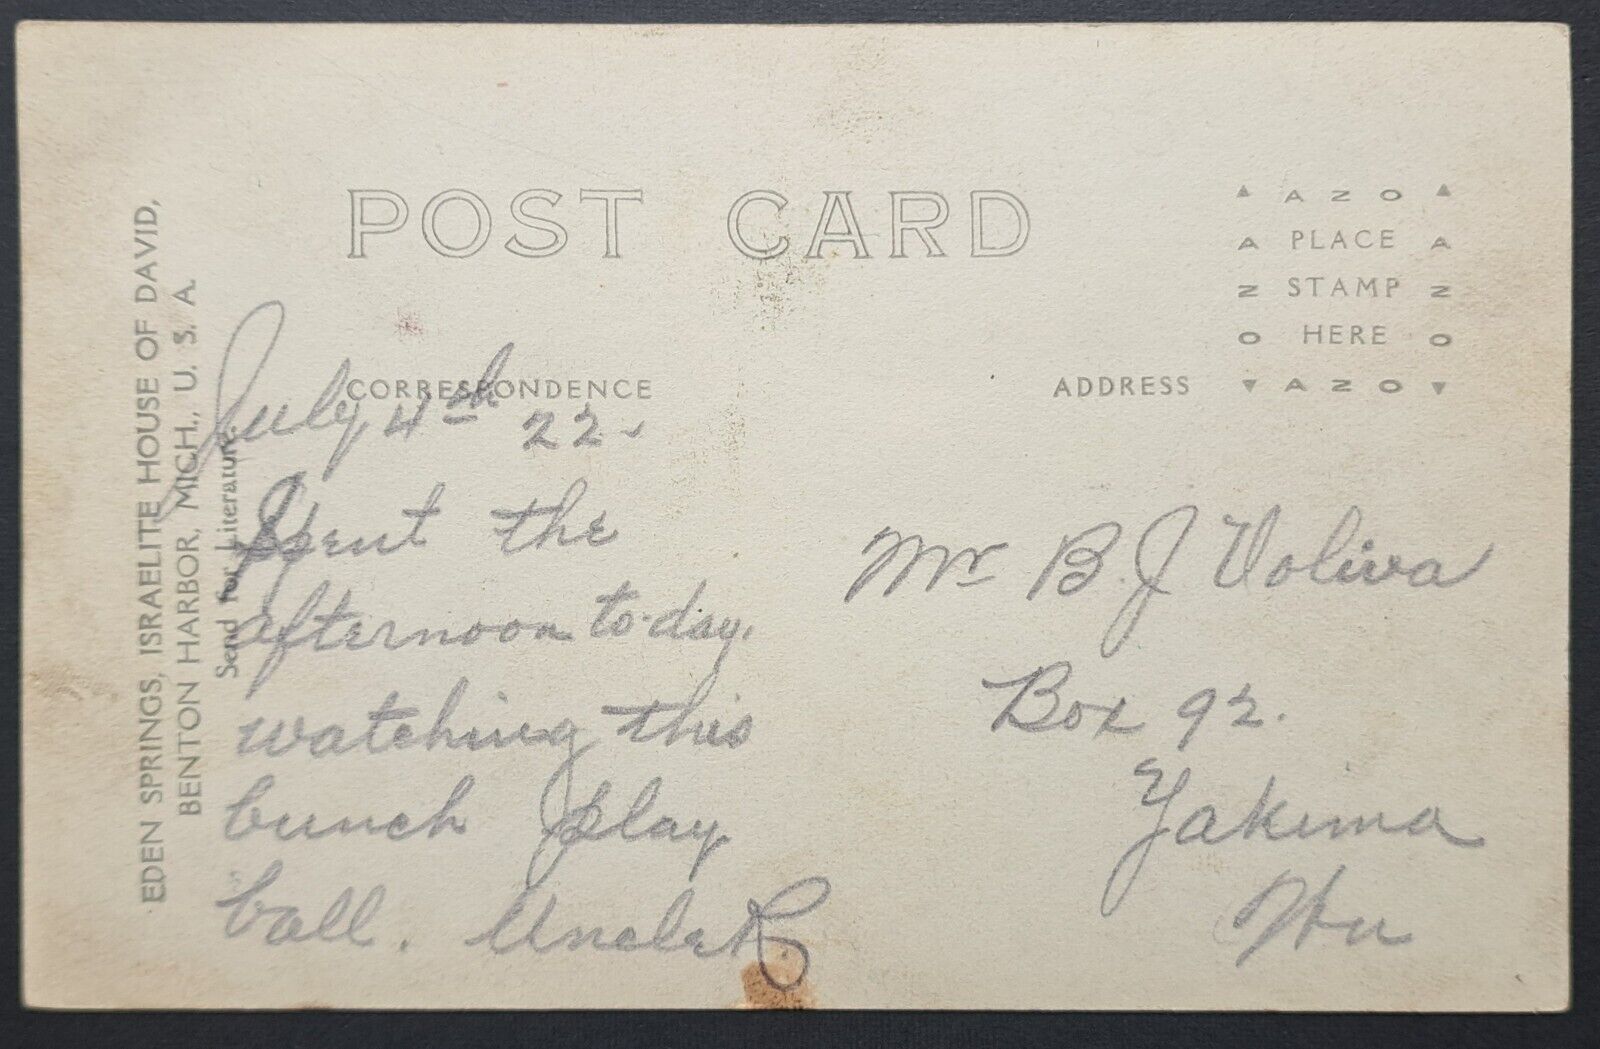 EDEN SPRINGS, ISRAELITE HOUSE OF DAVID,
BENTON HARBOR, MICH., U. S. A.
Send for Literature.
POST CARD
AZO
PLACE
STAMP
HERE
AZO
AZO
AZO
CORRESPONDENCE
ADDRESS
July 4th 22.
Spent the
afternoon to-day.
watching this
bunch play
ball. Uncle R
Mr B. J Voliva
Box 92.
Yakima
Wn